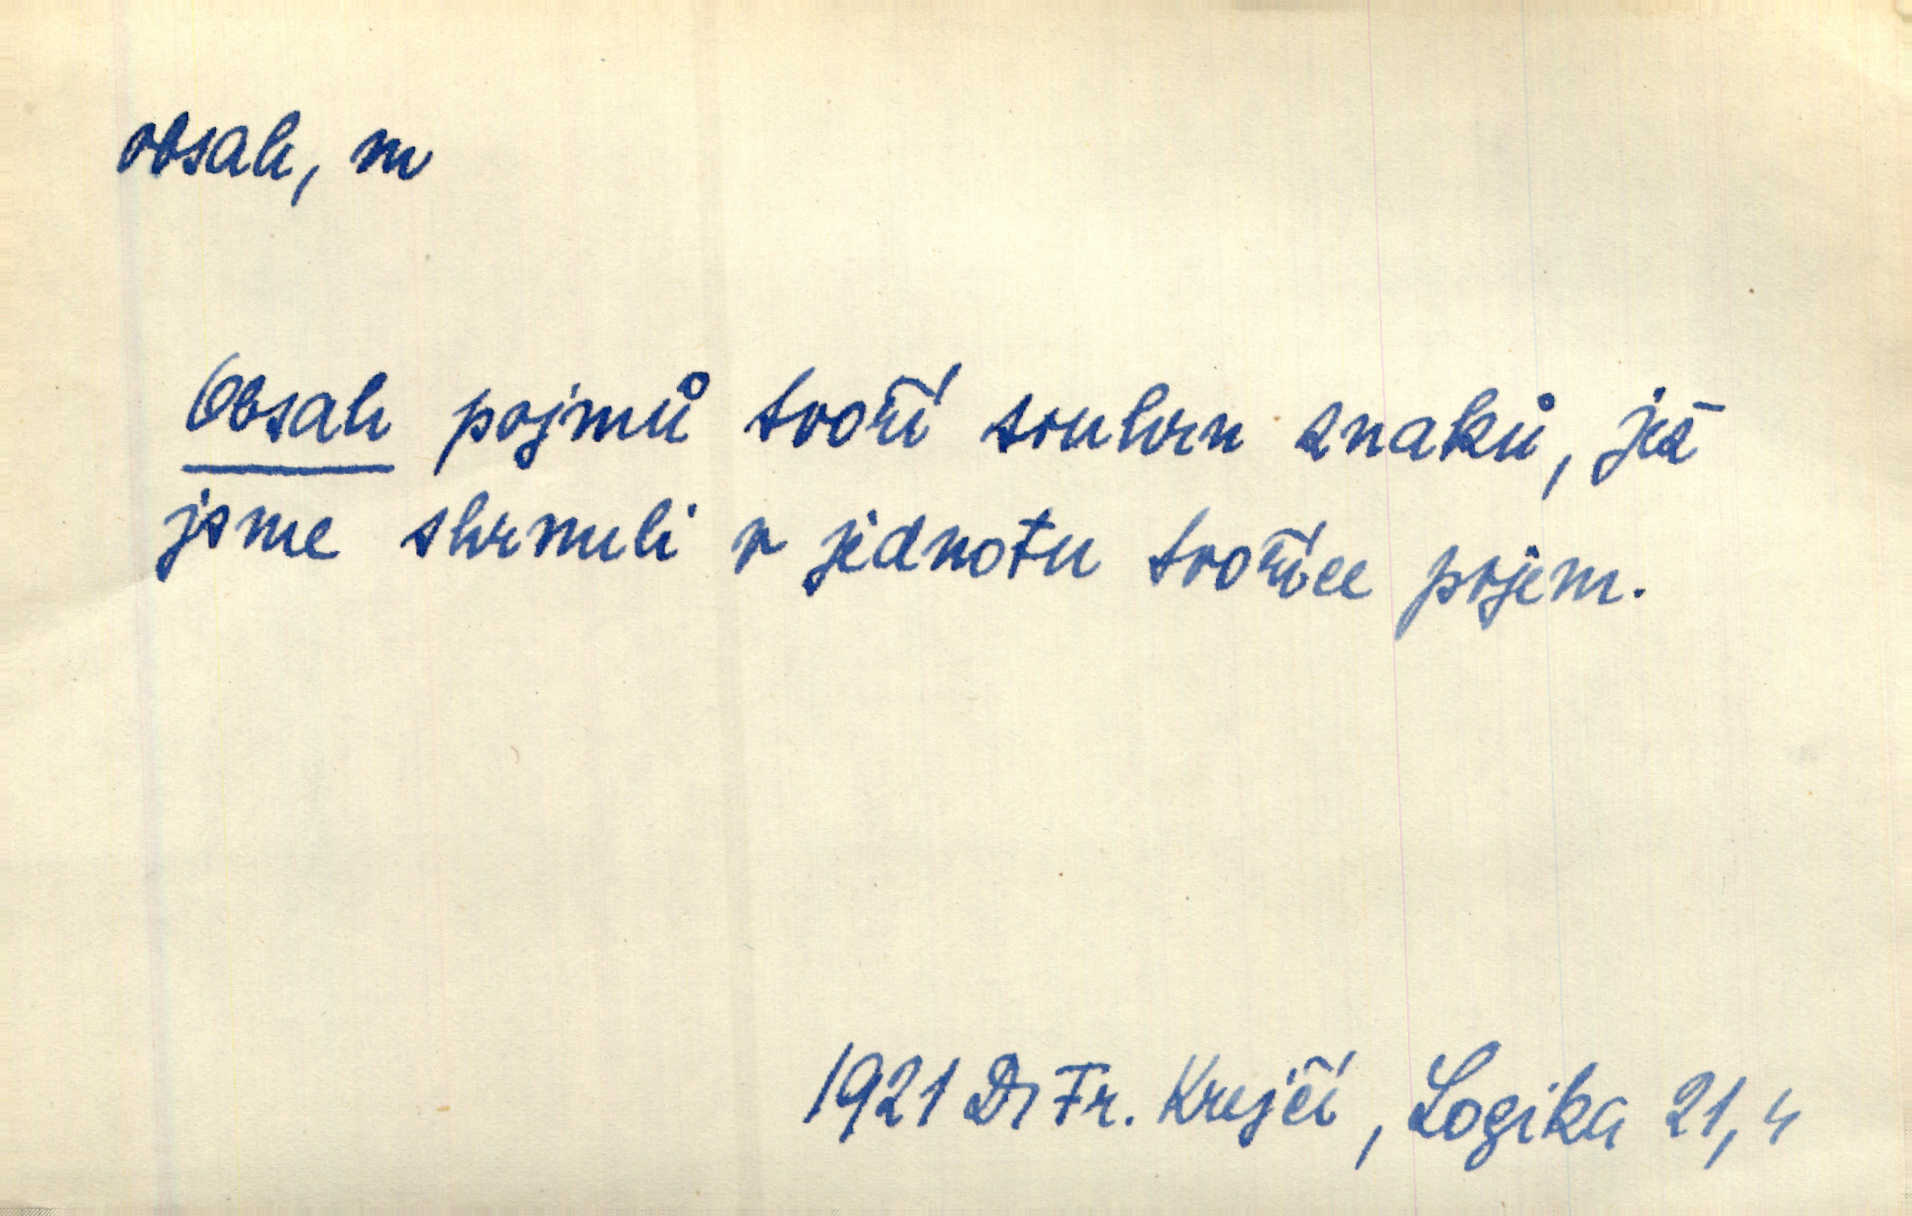 obsah, m
Obsah pojmů tvoří souhrn znaků, jež
jsme shrnuli v jednotu tvoříce pojem.
1921 Dr Fr. Krejčí, Logika 21, 4